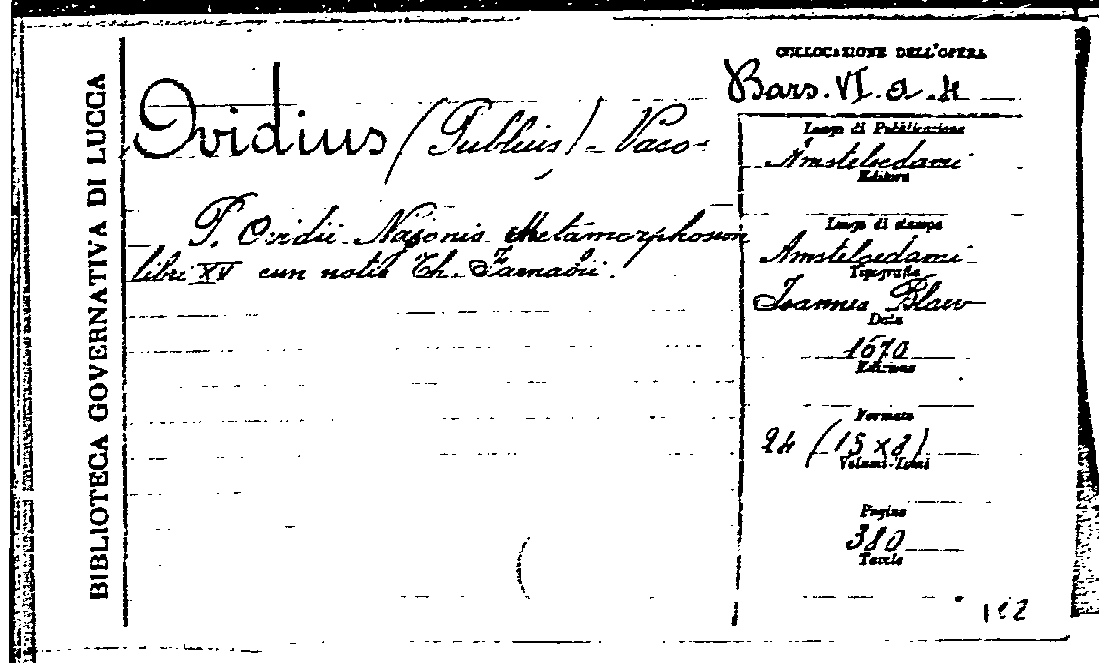 BIBLIOTECA GOVERNATIVA DI LUCCA
COLLOCAZIONE DELL'OPERA
Bars. VI. a. 4
Ovidius (Publius) - Naso -
P. Ovidii Nasonis Metamorphoseon
libri XV cun notis Th. Farnabii.
Luogo di Pubblicazione
Amstelodami
Editore
Luogo di stampa
Amstelodami
Tipografia
Joannes Blaw
Data
1670
Edizione
Formato
24 (15 x 8)
Volumi-Tomi
Pagine
380
Tavole